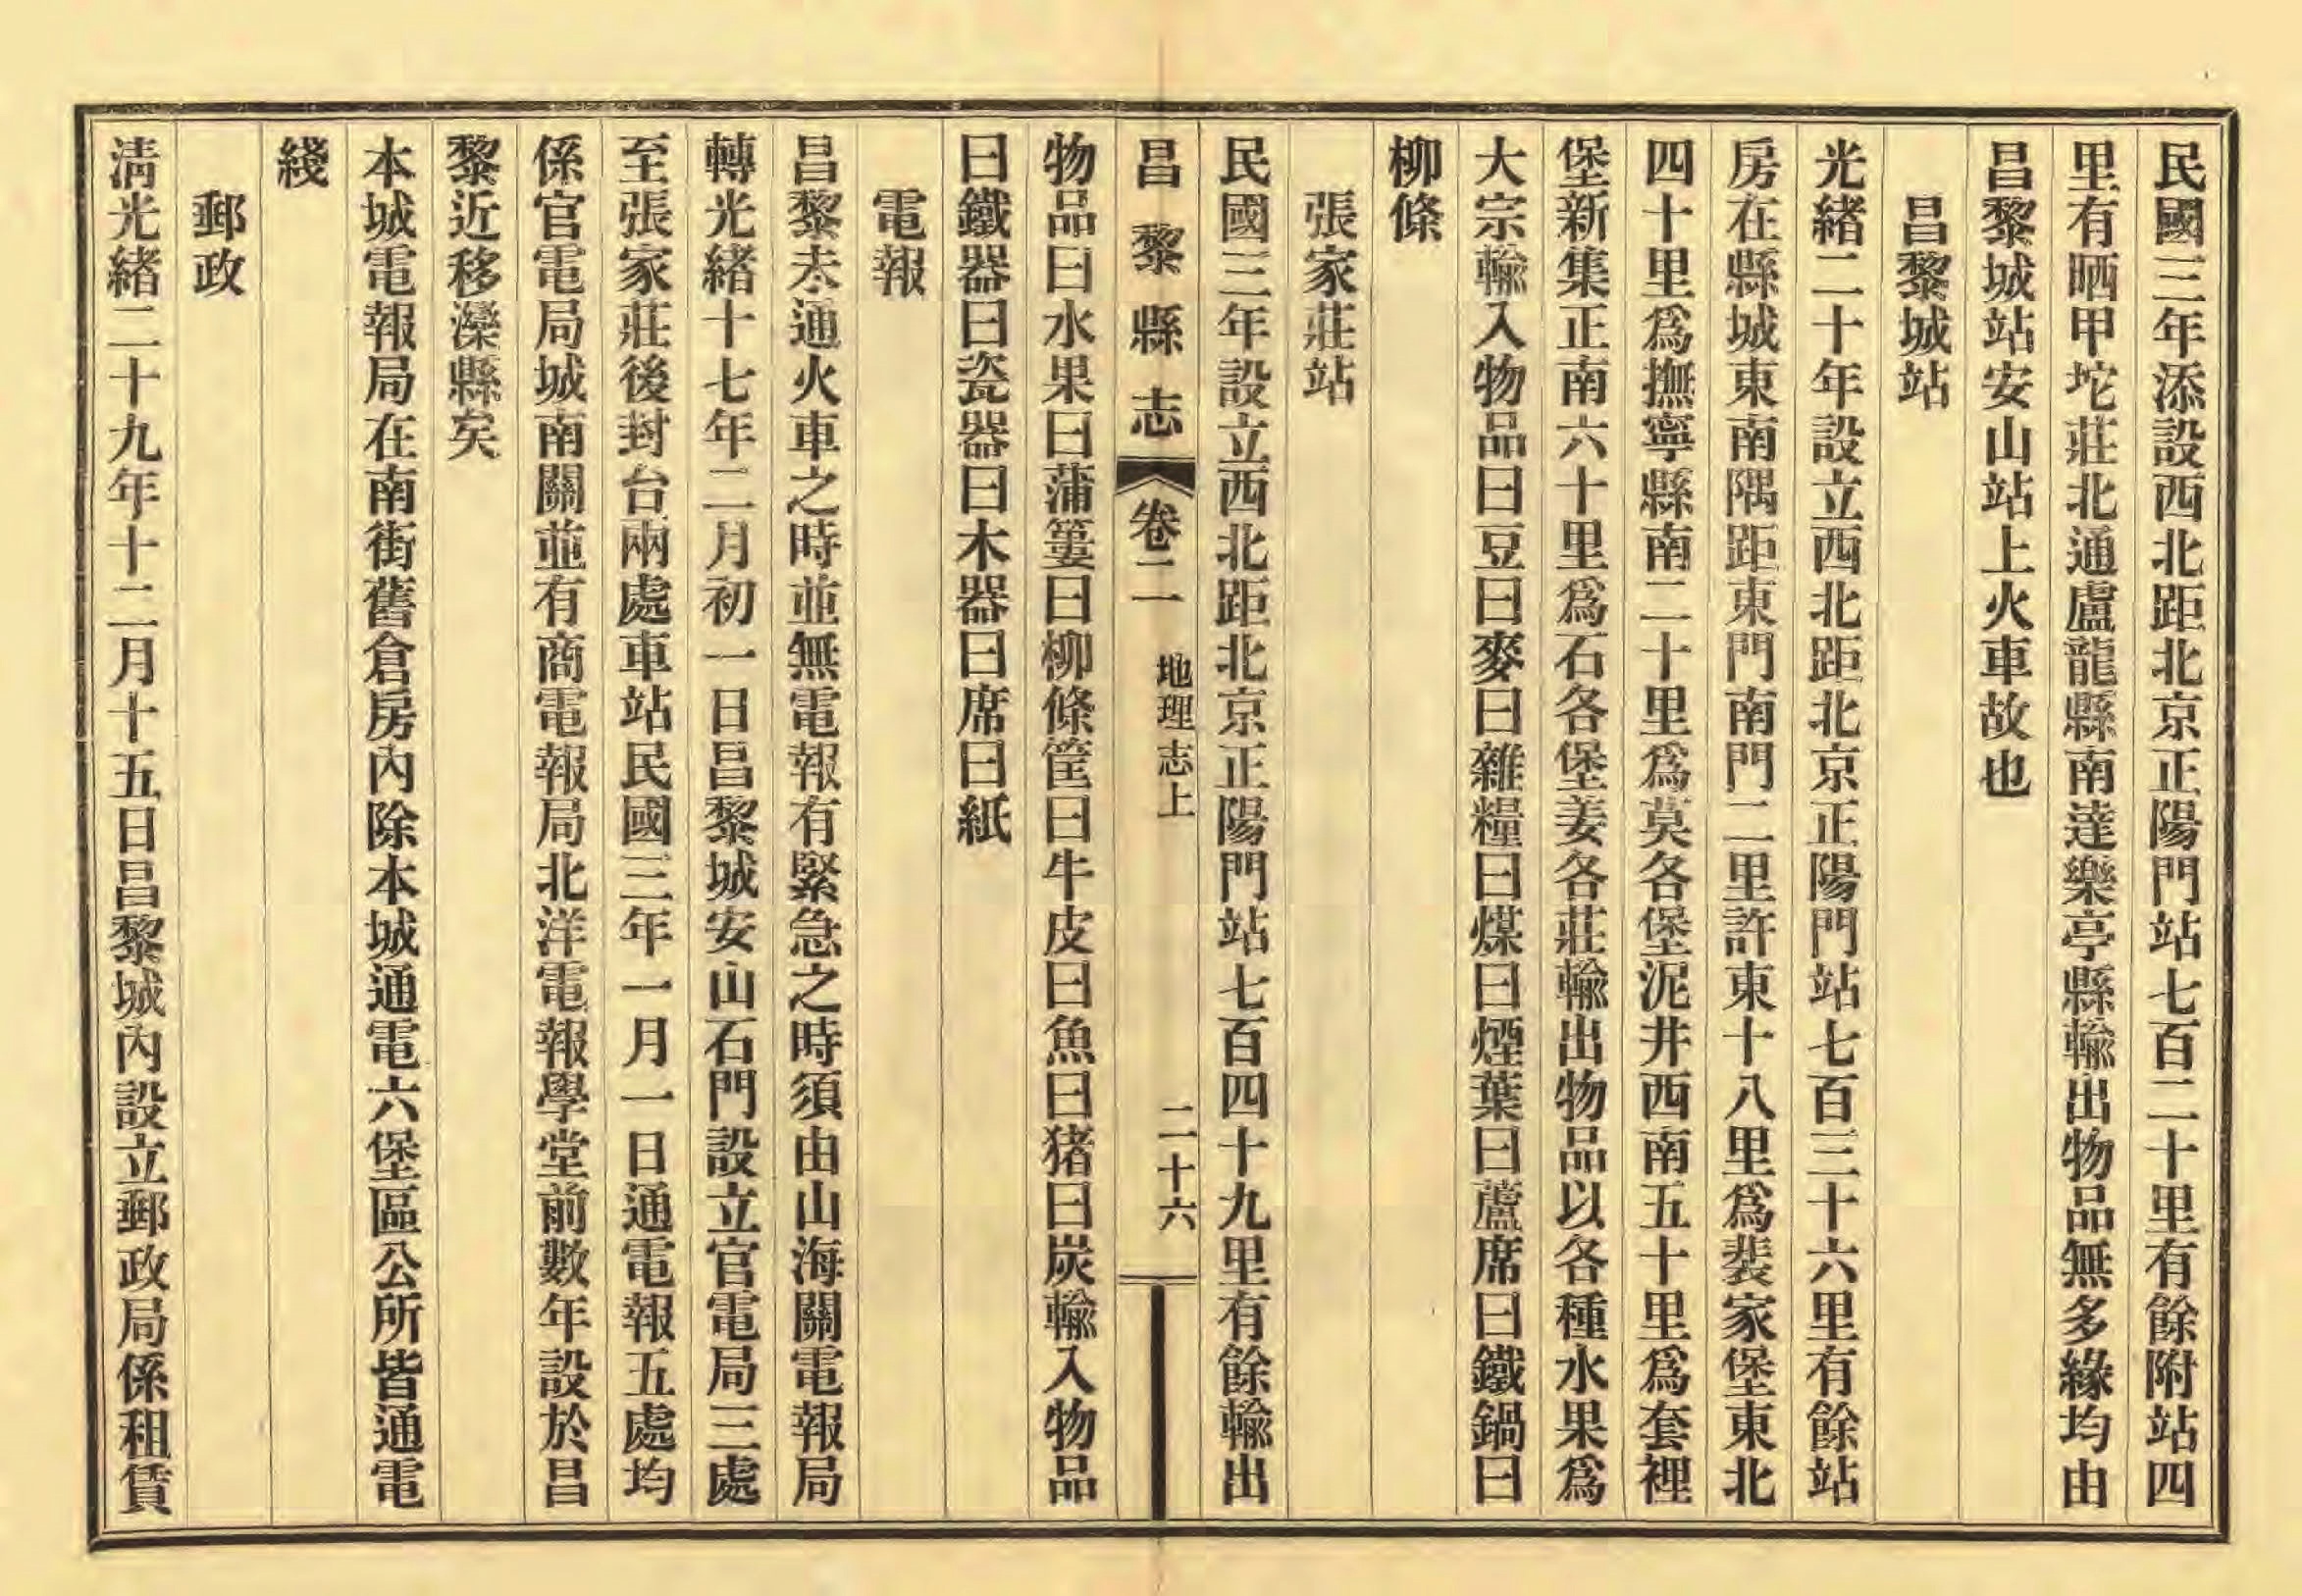 民國三年添設西北距北京正陽門站七百二十里有餘附站四
里有晒甲坨莊北通盧龍縣南達樂亭縣輸出物品無多緣均由
昌黎城站安山站上火車故也
昌黎城站
光緒二十年設立西北距北京正陽門站七百三十六里有餘站
房在縣城東南隅距東門南門二里許東十八里爲裴家堡東北
四十里爲撫寧縣南二十里爲莫各堡泥井西南五十里爲套裡
堡新集正南六十里爲石各堡姜各莊輸出物品以各種水果爲
大宗輸入物品曰豆曰麥曰雜糧曰煤曰煙葉曰蘆席曰鐵鍋曰
柳條
張家莊站
民國三年設立西北距北京正陽門站七百四十九里有餘輸出
昌黎縣志 卷二 地理志上 二十六
物品曰水果曰蒲簍曰柳條筐曰牛皮曰魚曰猪曰炭輸入物品
曰鐵器曰瓷器曰木器曰席曰紙
電報
昌黎未通火車之時並無電報有緊急之時須由山海關電報局
轉光緒十七年二月初一日昌黎城安山石門設立官電局三處
至張家莊後封台兩處車站民國三年一月一日通電報五處均
係官電局城南關並有商電報局北洋電報學堂前數年設於昌
黎近移灤縣矣
本城電報局在南街舊倉房內除本城通電六堡區公所皆通電
綫
郵政
清光緒二十九年十二月十五日昌黎城內設立郵政局係租賃